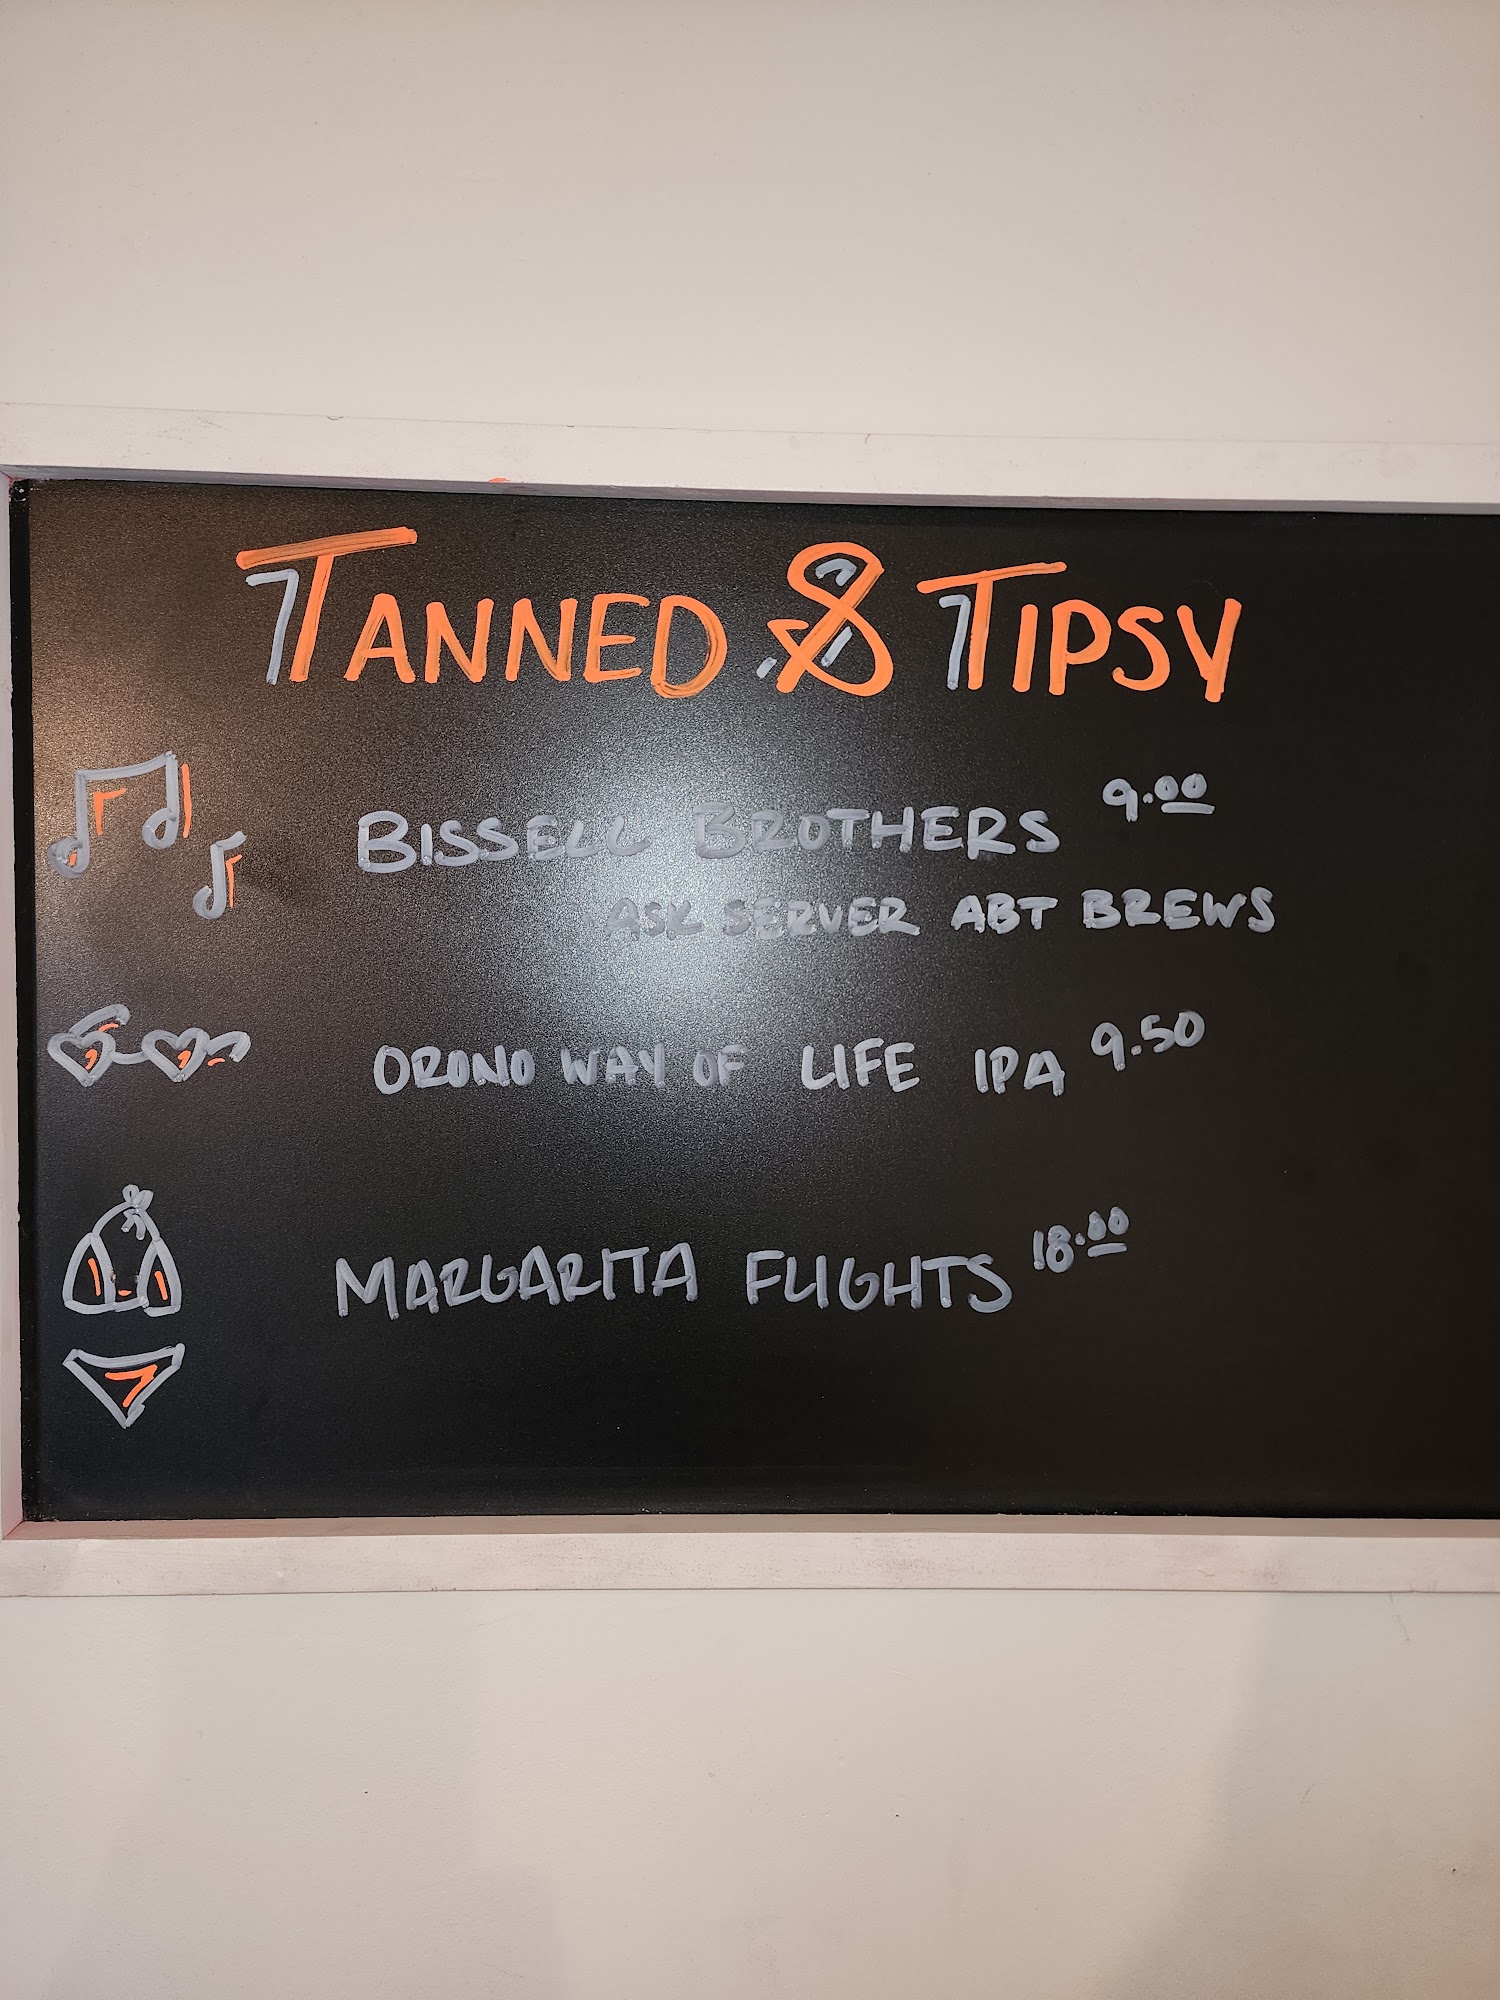 TANNED & TIPSY
BISSELL BROTHERS 9.00
ASK SERVER ABT BREWS
ORONO WAY OF LIFE IPA 9.50
MARGARITA FLIGHTS 18.00